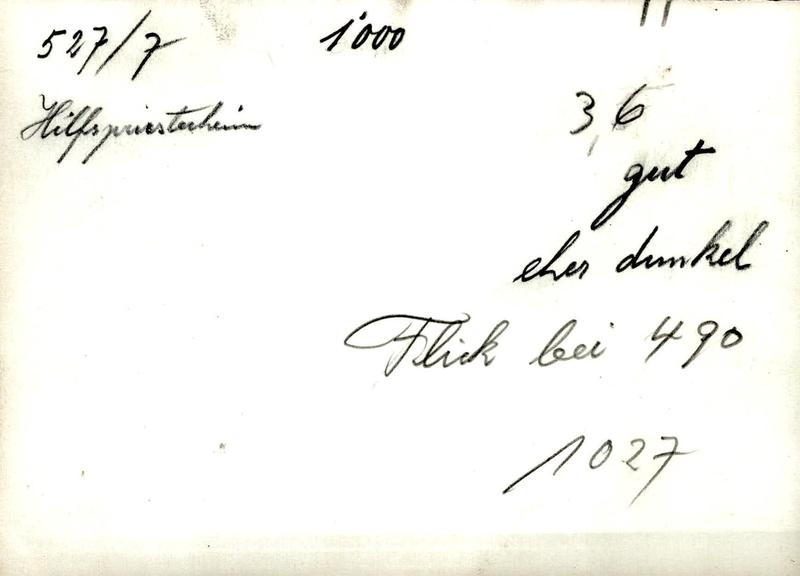 527/7 1'000
Hilfspriesterheim
3,6
gut
eher dunkel
Flick bei 490
1027